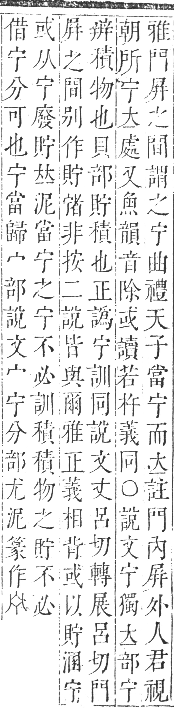 雅門屏之間謂之宁曲禮天子當宁而立註門內屏外人君視
朝所宁立處又魚韻音除或讀若杵義同○說文宁獨立部宁
辨積物也貝部貯積也正譌宁訓同說文丈呂切轉展呂切門
屏之間別作貯㣥非按二說皆與爾雅正義相背或以貯溷宁
或从宁廢貯𠀤泥當宁之宁不必訓積積物之貯不必
借宁分可也宁當歸宀部說文宀宁分部尤泥篆作